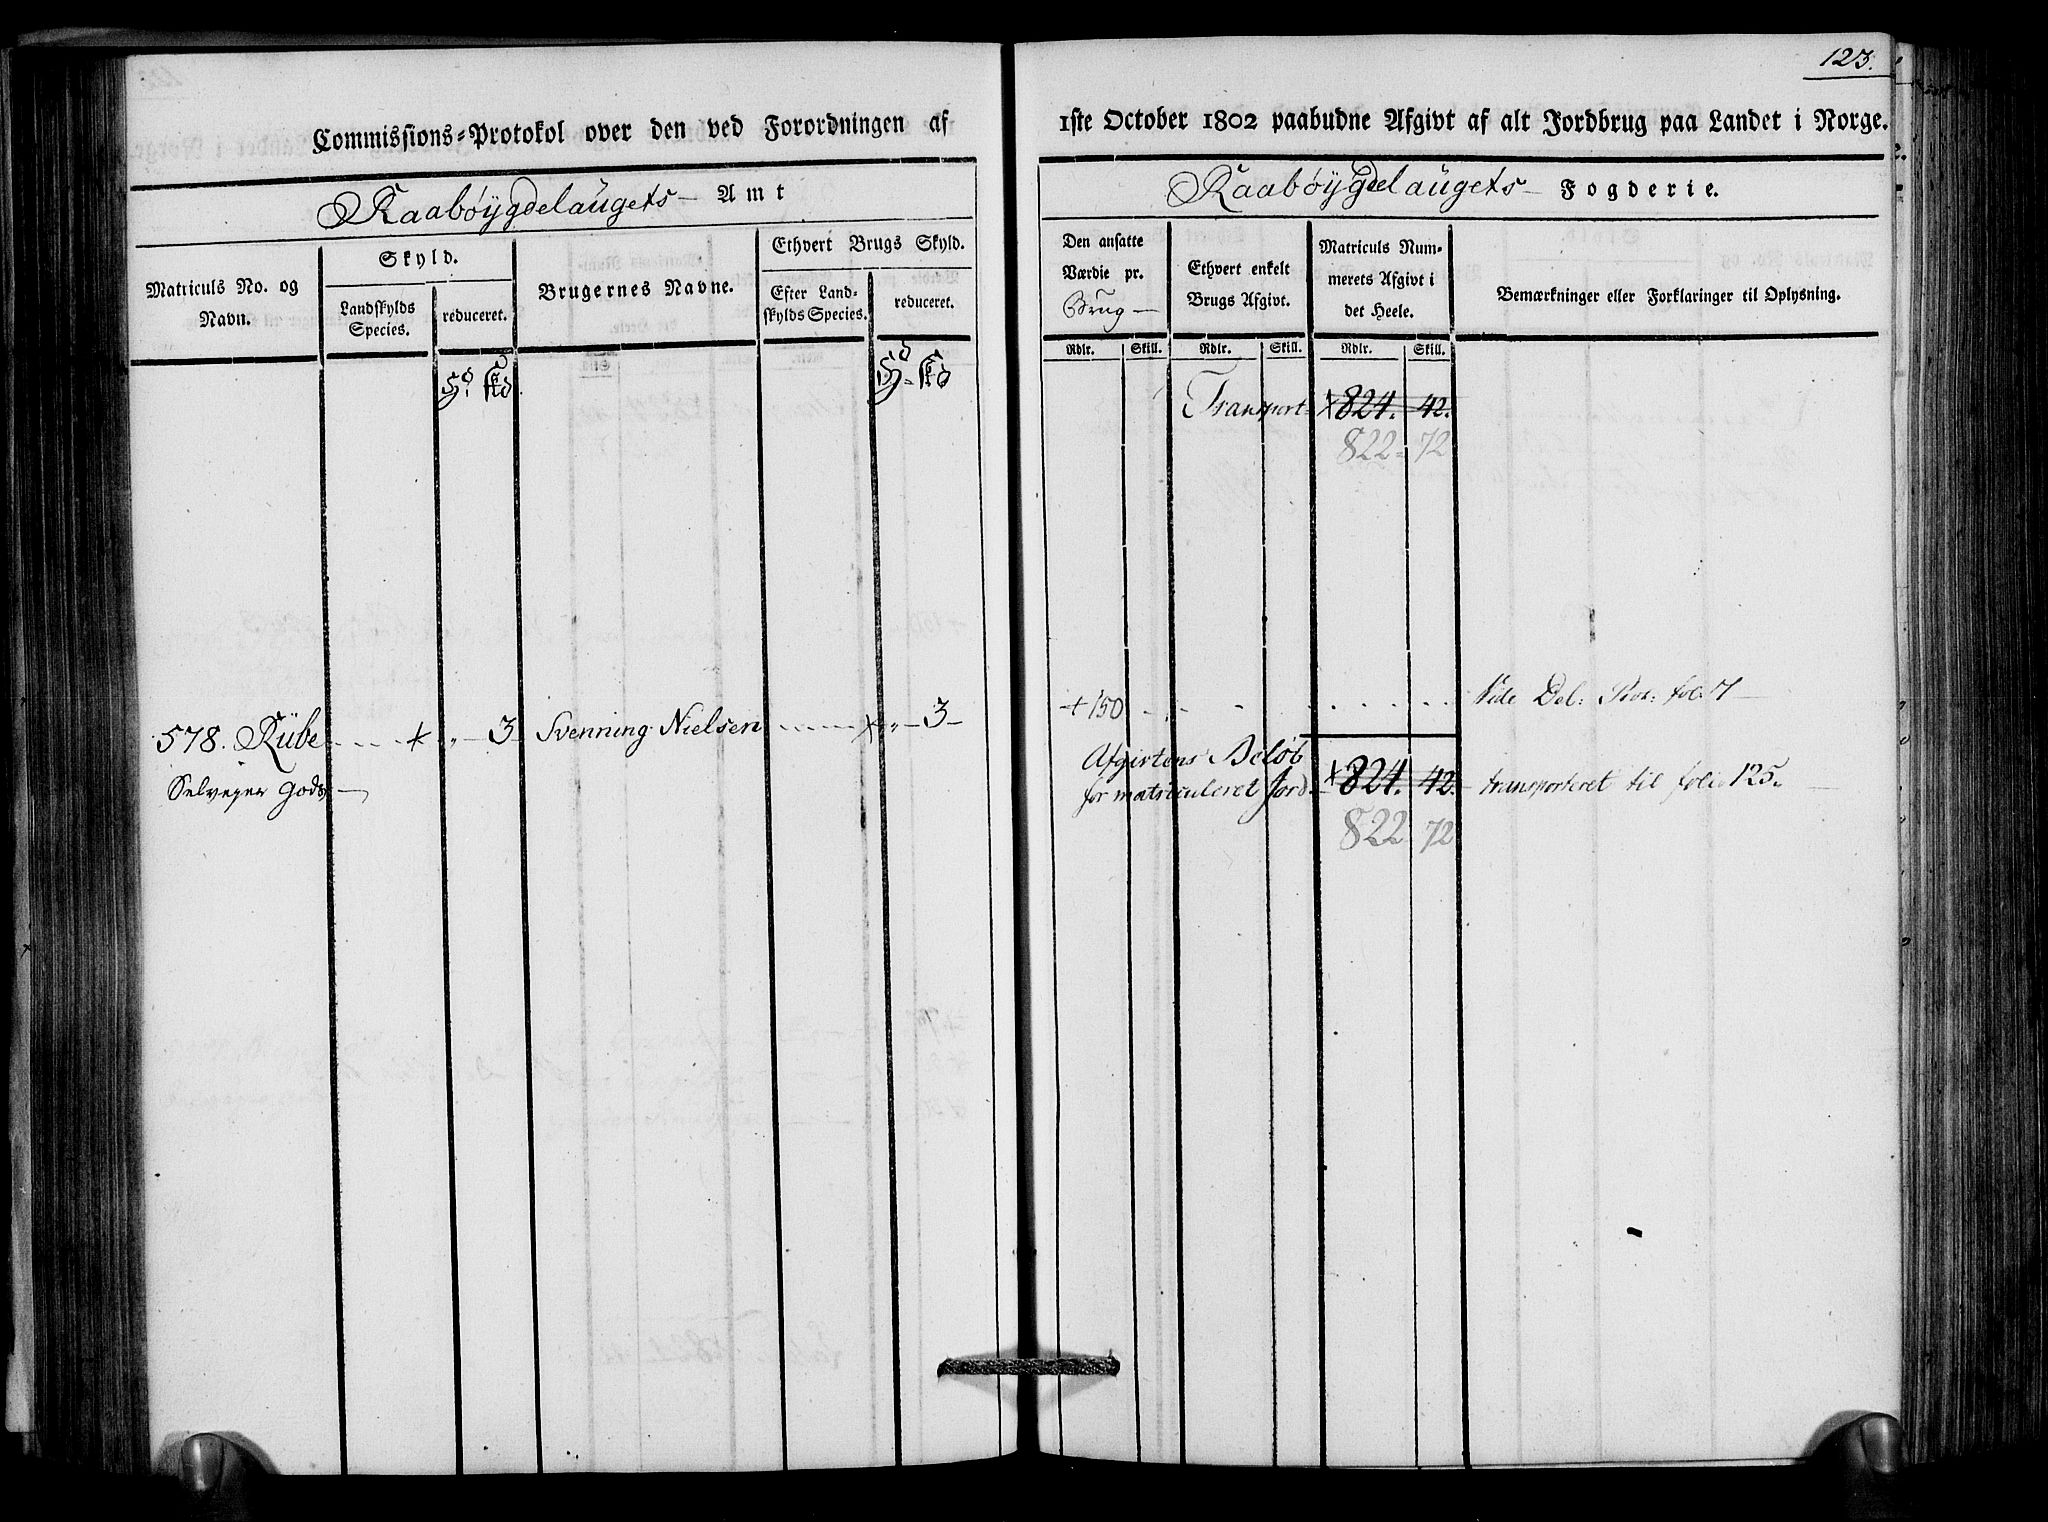 123.
Commissions-Protokol over den ved Forordningen af
1ste October 1802 paabudne Afgivt af alt Jordbrug paa Landet i Norge.
Raabøygdelaugets Amt
Raabøygdelaugets Fogderie.
Matriculs No. og
Navn.
Skyld.
Landskylds
Species.
reduceret.
Brugernes Navne.
Ethvert Brugs Skyld.
Efter Land-
skylds Species.
reduceret.
Den ansatte
Værdie pr.
Brug
Ethvert enkelt
Brugs Afgivt.
Matriculs Num-
merets Afgivt i
det Heele.
Bemærkninger eller Forklaringer til Oplysning.
Rdlr. Skill. Rdlr. Skill. Rdlr. Skill.
Transport 824. 42.
822 72
578. Rübe 3 Svenning Nielsen 3 +150 Vide Del: Prot: fol: 7
Selveyer Gods
Afgivtens Beløb
for matriculeret Jord. 824. 42. transporteret til folio 125.
822 72